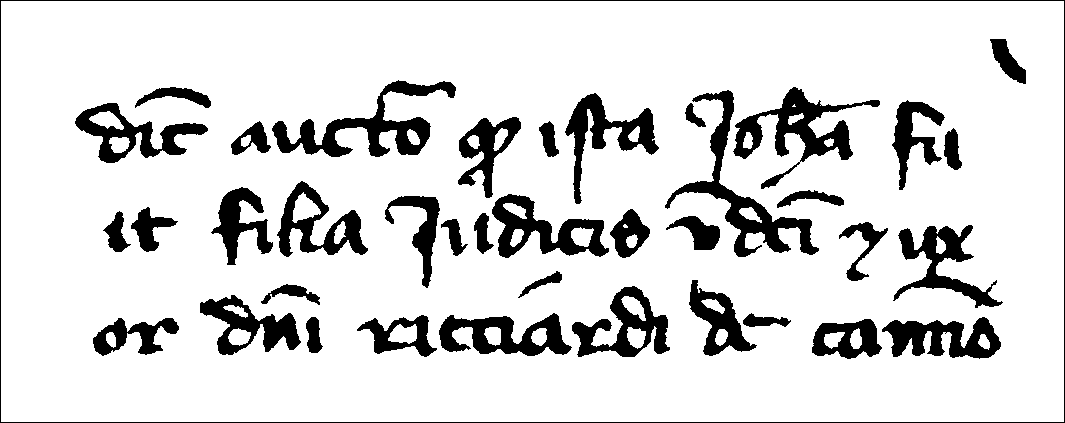 dic̄ auctō qꝫ ista Joħa fu
it filia Judicis v̄dc̄i ⁊ ux
or dn̄i ricciardi đ cam̄io